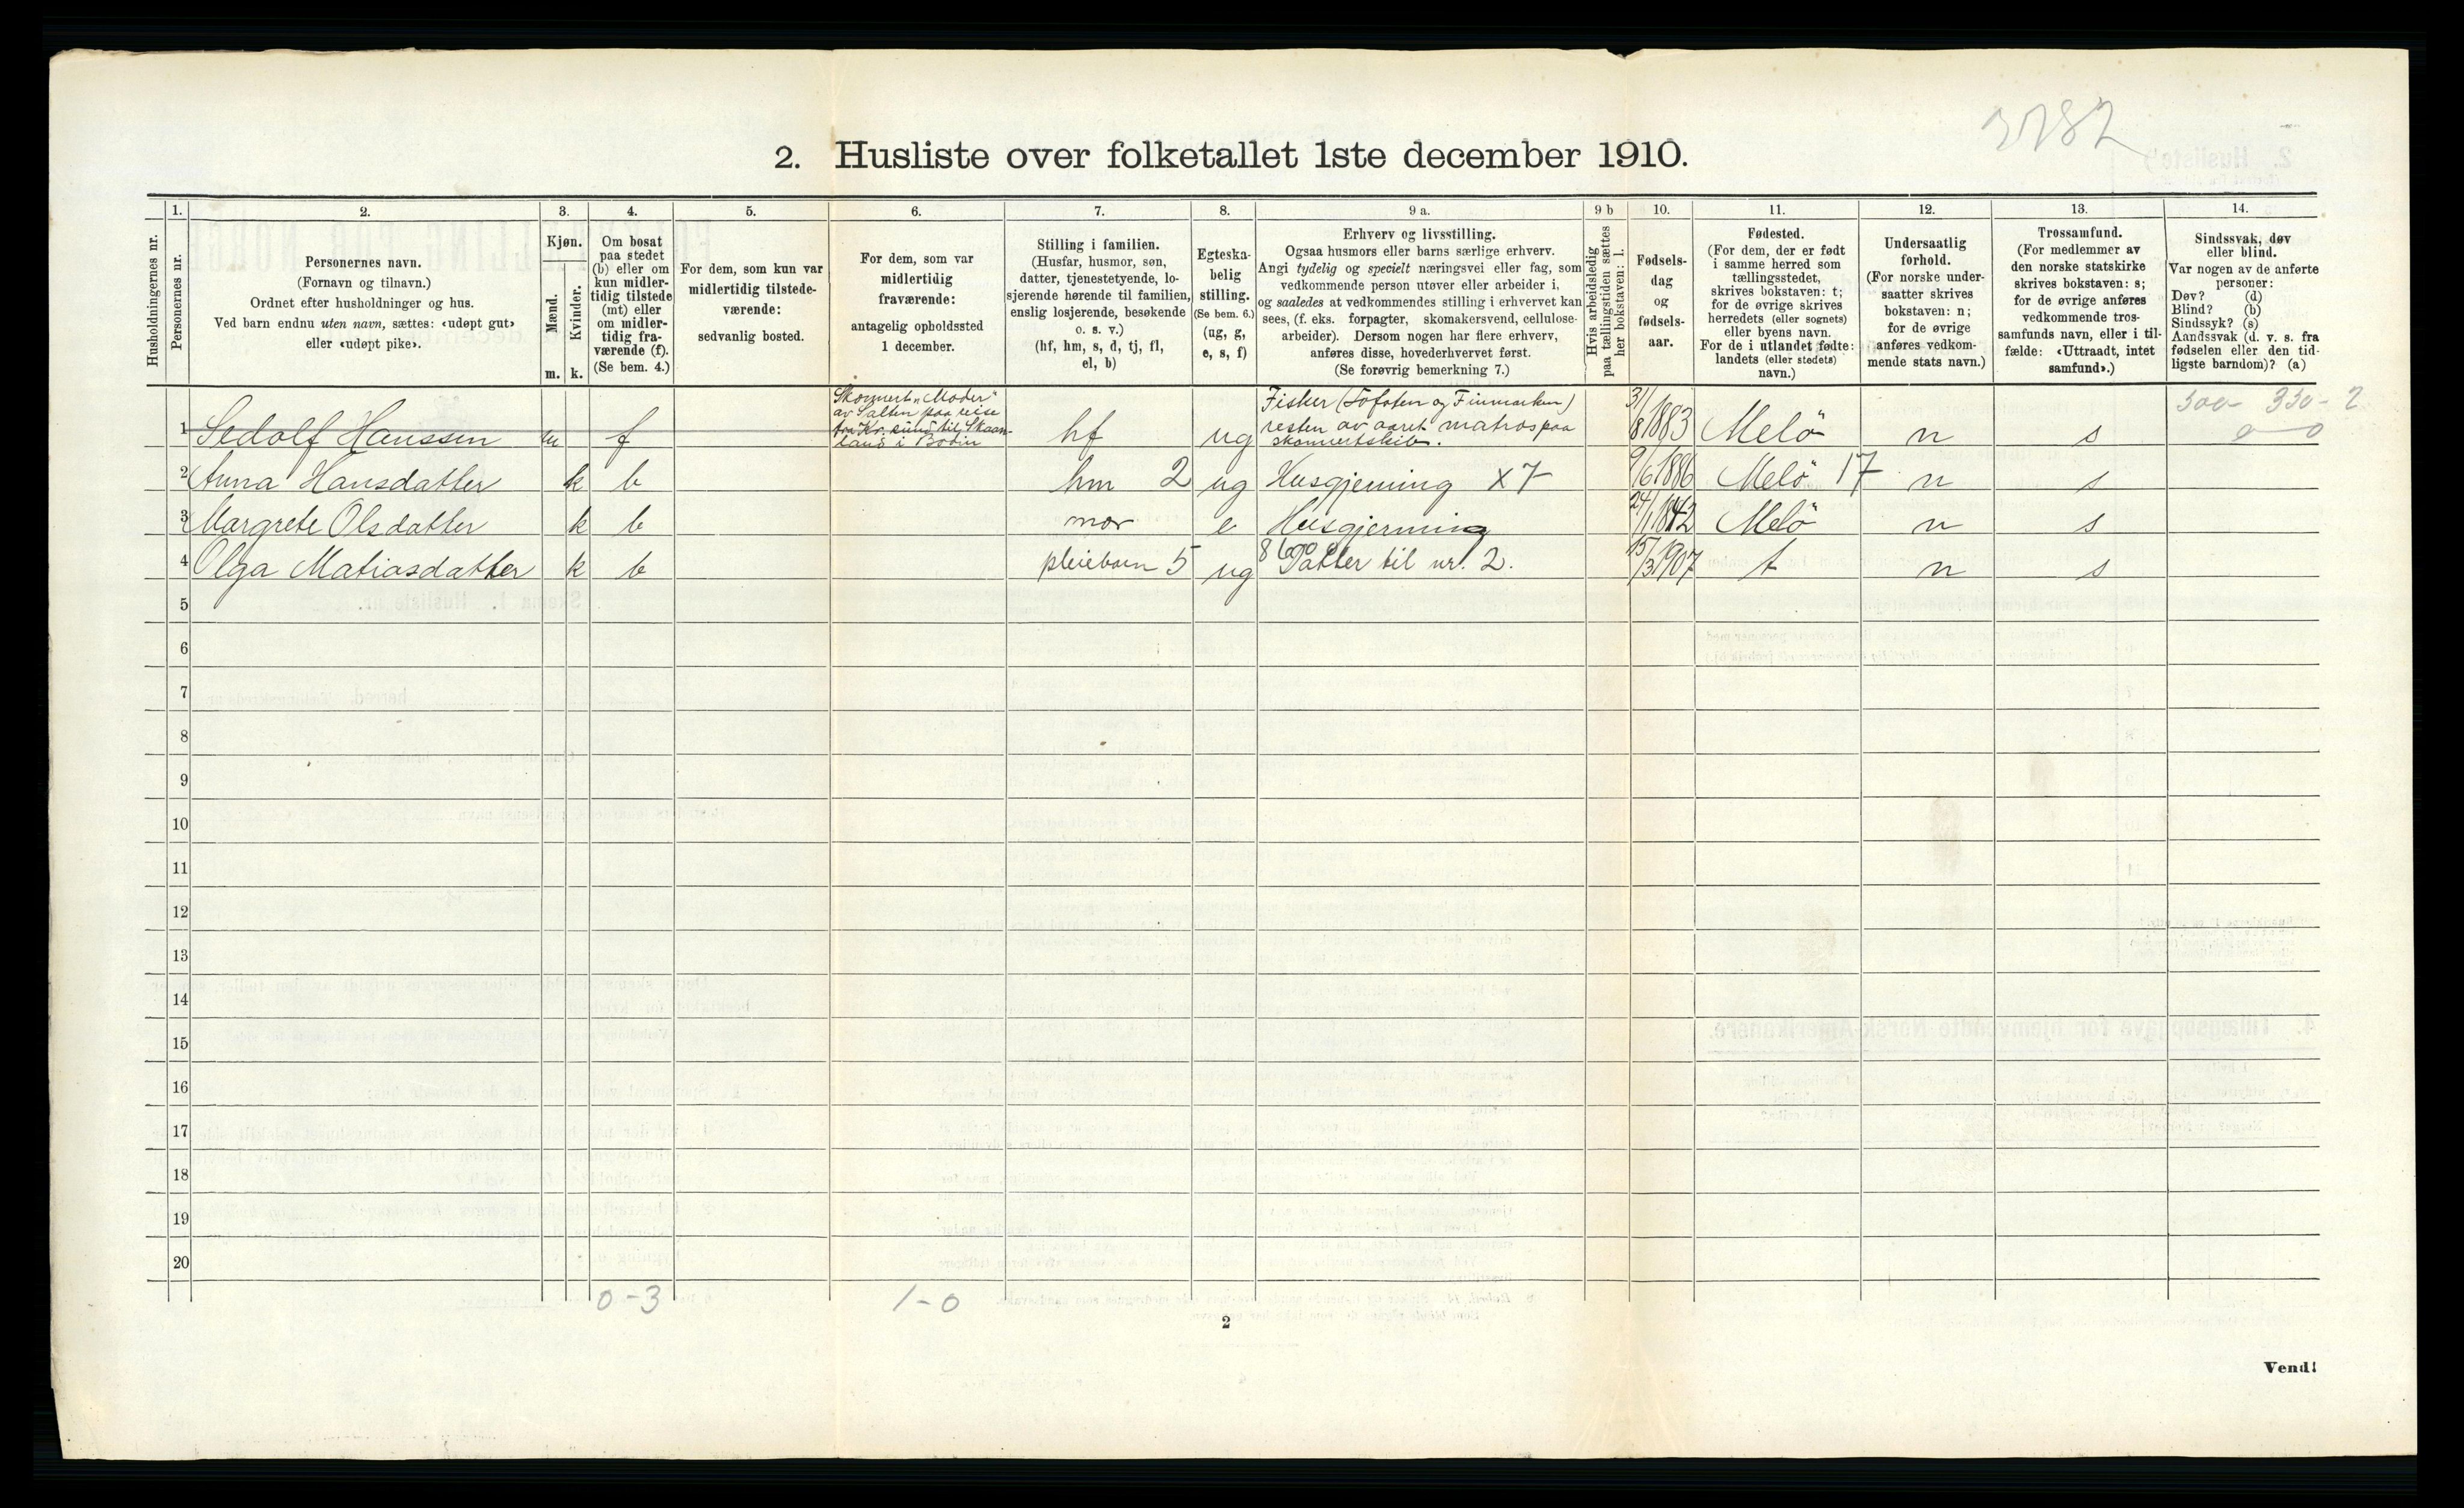 3282
2. Husliste over folketallet 1ste december 1910.
Husholdningernes nr.
1.
Personernes nr.
2.
Personernes navn.
(Fornavn og tilnavn.)
Ordnet efter husholdninger og hus.
Ved barn endnu uten navn, sættes: «udøpt gut»
eller «udøpt pike».
3.
Kjøn.
Mænd.
Kvinder.
m. k.
4.
Om bosat
paa stedet
(b) eller om
kun midler-
tidig tilstede
(mt) eller
om midler-
tidig fra-
værende (f).
(Se bem. 4.)
5.
For dem, som kun var
midlertidig tilstede-
værende:
sedvanlig bosted.
6.
For dem, som var
midlertidig
fraværende:
antagelig opholdssted
1 december.
7.
Stilling i familien.
(Husfar, husmor, søn,
datter, tjenestetyende, lo-
sjerende hørende til familien,
enslig losjerende, besøkende
o. s. v.)
(hf, hm, s, d, tj, fl,
el, b)
8.
Egteska-
belig
stilling.
(Se bem. 6.)
(ug, g,
e, s, f)
9 a.
Erhverv og livsstilling.
Ogsaa husmors eller barns særlige erhverv.
Angi tydelig og specielt næringsvei eller fag, som
vedkommende person utøver eller arbeider i,
og saaledes at vedkommendes stilling i erhvervet kan
sees, (f. eks. forpagter, skomakersvend, cellulose-
arbeider). Dersom nogen har flere erhverv,
anføres disse, hovederhvervet først.
(Se forøvrig bemerkning 7.)
9 b
Hvis arbeidsledig
paa tællingstiden sættes
her bokstaven: l.
10.
Fødsels-
dag
og
fødsels-
aar.
11.
Fødested.
(For dem, der er født
i samme herred som
tællingsstedet,
skrives bokstaven: t;
for de øvrige skrives
herredets (eller sognets)
eller byens navn.
For de i utlandet fødte:
landets (eller stedets)
navn.)
12.
Undersaatlig
forhold.
(For norske under-
saatter skrives
bokstaven: n;
for de øvrige
anføres vedkom-
mende stats navn.)
13.
Trossamfund.
(For medlemmer av
den norske statskirke
skrives bokstaven: s;
for de øvrige anføres
vedkommende tros-
samfunds navn, eller i til-
fælde: «Uttraadt, intet
samfund».)
14.
Sindssvak, døv
eller blind.
Var nogen av de anførte
personer:
Døv? (d)
Blind? (b)
Sindssyk? (s)
Aandssvak (d. v. s. fra
fødselen eller den tid-
ligste barndom)? (a)
1 Sedolf Hanssen m f
Skonnert „Moder"
av Salten paa reise
fra Kr. sund til Skaan-
land i Bodin
hf ug
Fisker (Lofoten og Finmarken)
resten av aaret matros paa
skonnertskib.
31/8 1883 Melö n s
300- 330- 2
0 0
2 Anna Hansdatter k b hm 2 ug Husgjerning x 7 9/6 1886 Melö 17 n s
3 Margrete Olsdatter k b mor e Husgjerning 24/1 1842 Melö n s
4 Olga Matiasdatter k b pleiebarn 5 ug Datter til nr. 2. 15/3 1907 t n s
5
6
7
8
9
10
11
12
13
14
15
16
17
18
19
20
0 - 3 1 - 0
2
Vend!